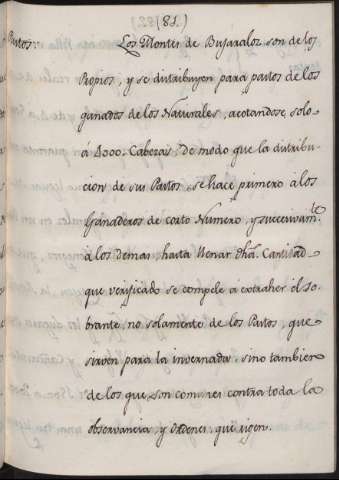 (81.)
Pastos.
Los Montes de Bujaraloz son de los
Propios, y se distribuyen para pastos de los
ganados de los Naturales, acotandose solo
á 4000. Cabezas: De modo que la distribu-
cion de sus Pastos, se hace primero á los
Ganaderos de corto Numero, y succesivam.te
á los demas, hasta llenar dha. Cantidad
que verificado se compele á extraher el So-
brante, no solamente de los Pastos, que
sirven para la invernada, sino tambien
de los que son comunes contra toda la
observancia, y ordenes, que rigen.